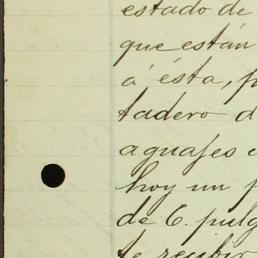 estado de
que están
á ésta, p
tadero d
aguajes e
hoy un p
de 6. pulg
te recibir